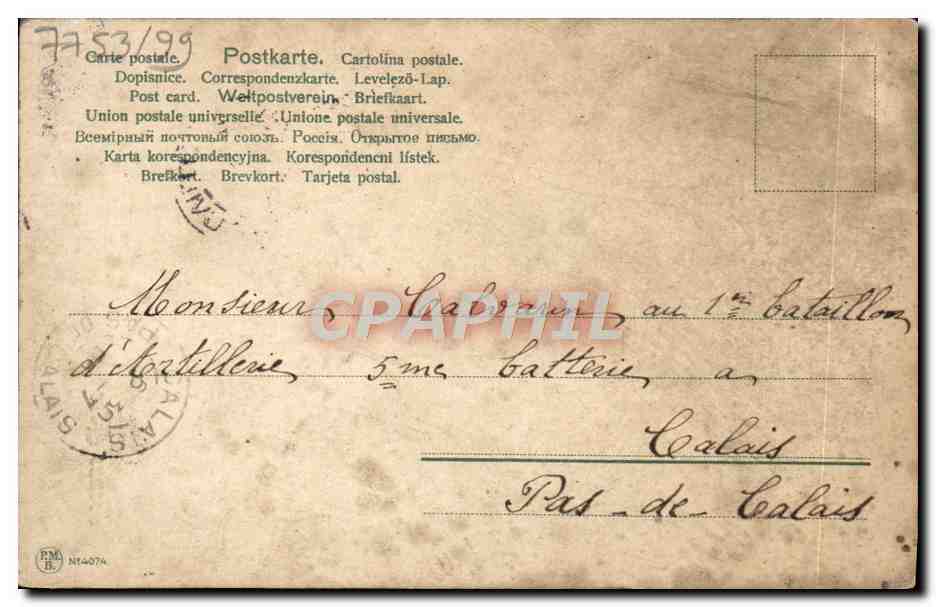 7753/99
Carte postale. Postkarte. Cartolina postale.
Dopisnice. Correspondenzkarte. Levelező-Lap.
Post card. Weltpostverein. Briefkaart.
Union postale universelle. Unione postale universale.
Всемірный почтовый союзъ. Россія. Открытое письмо.
Karta korespondencyjna. Korespondencni listek.
Brefkort. Brevkort. Tarjeta postal.
Monsieur Calvarin au 1er bataillon
d'Artillerie 5me batterie a
Calais
Pas-de-Calais
CPAPHIL
CALAIS
P.M.
B.
No 4074